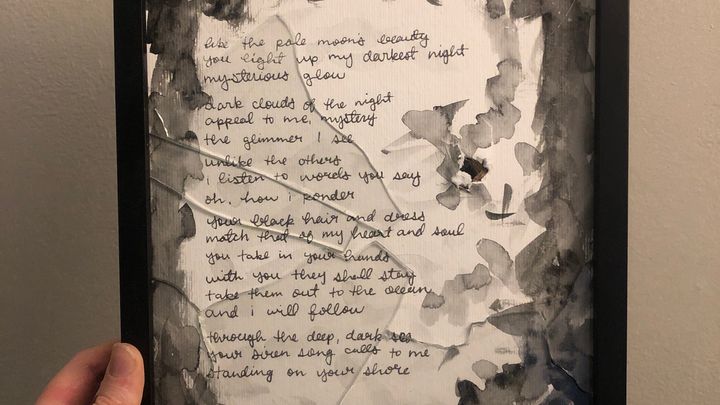 like the pale moon's beauty
you light up my darkest night
mysterious glow
dark clouds of the night
appeal to me, mystery
the glimmer i see
unlike the others
i listen to words you say
oh, how i ponder
your black hair and dress
match that of my heart and soul
you take in your hands
with you they shall stay
take them out to the ocean
and i will follow
through the deep, dark sea
your siren song calls to me
standing on your shore